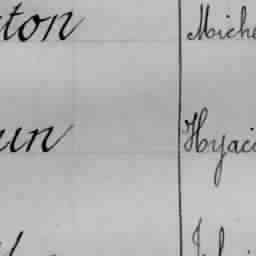 ton Miche
un Hyaci